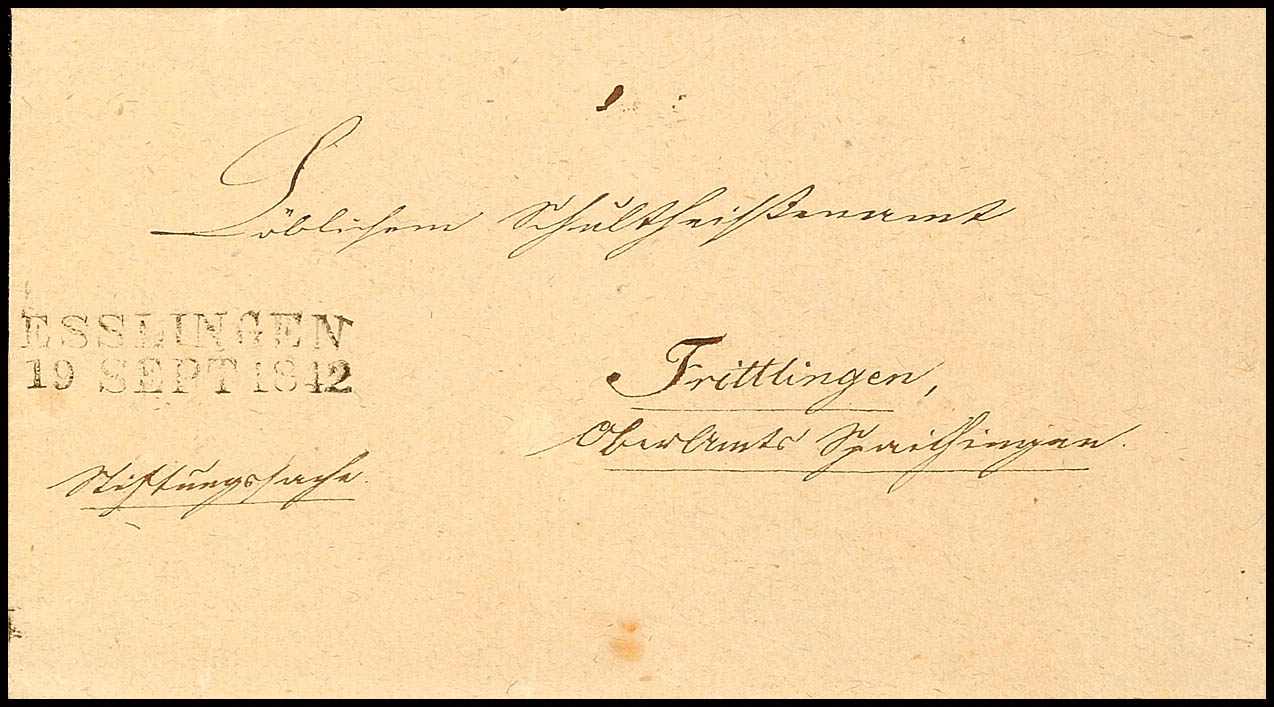 Löblichem Schultheißenamt
ESSLINGEN
19 SEPT 1842
Frittlingen,
OberAmts Spaichingen.
Stiftungssache.